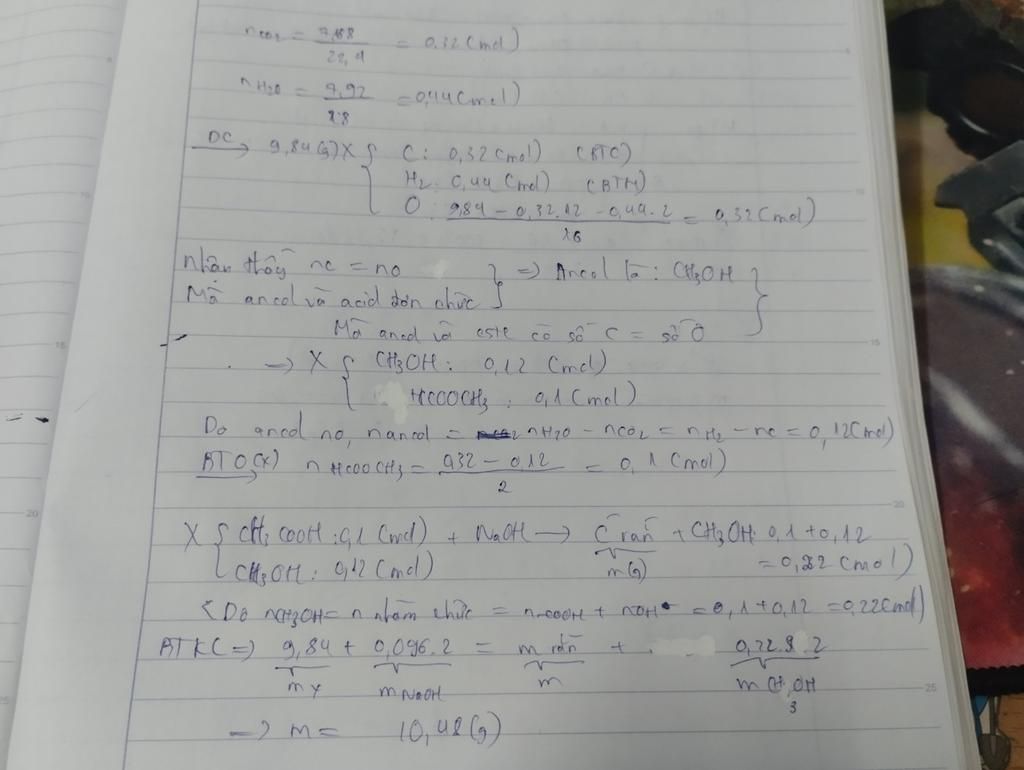 nCO2 = 7,168 / 22,4 = 0,32 (mol)
nH2O = 7,92 / 18 = 0,44 (mol)
ĐC→ 9,84(g) X { C: 0,32 (mol) (BTC)
H2: 0,44 (mol) (BTH)
O: 9,84 - 0,32.12 - 0,44.2 / 16 = 0,32 (mol)
Nhận thấy nC = nO } => Ancol là: CH3OH
Mà ancol và acid đơn chức
Mà ancol và este có số C = số O
=> X { CH3OH: 0,12 (mol)
HCOOCH3: 0,1 (mol)
Do ancol no, nancol = nH2O - nCO2 = nH2 - nC = 0,12 (mol)
BTO(X) nHCOOCH3 = 0,32 - 0,12 / 2 = 0,1 (mol)
X { CH3COOH: 0,1 (mol) + NaOH → C rắn + CH3OH: 0,1 + 0,12
CH3OH: 0,12 (mol) m(g) = 0,22 (mol)
(Do nCH3OH = n nhóm chức = n-COOH + nOH = 0,1 + 0,12 = 0,22 (mol)
BTKL => 9,84 + 0,096.2 = m rắn + 0,22.32
mX mNaOH m mCH3OH
=> m = 10,48 (g)
15
20
25
15
20
25